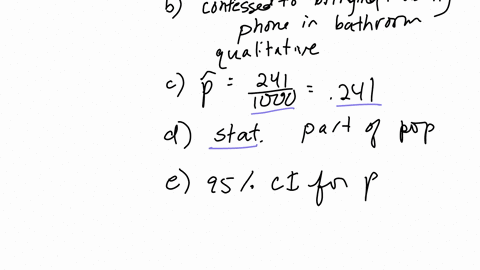 b) confessed to
phone in bathroom
qualitative
c) p̂ = 241/1000 = .241
d) stat. part of pop
e) 95% CI for p